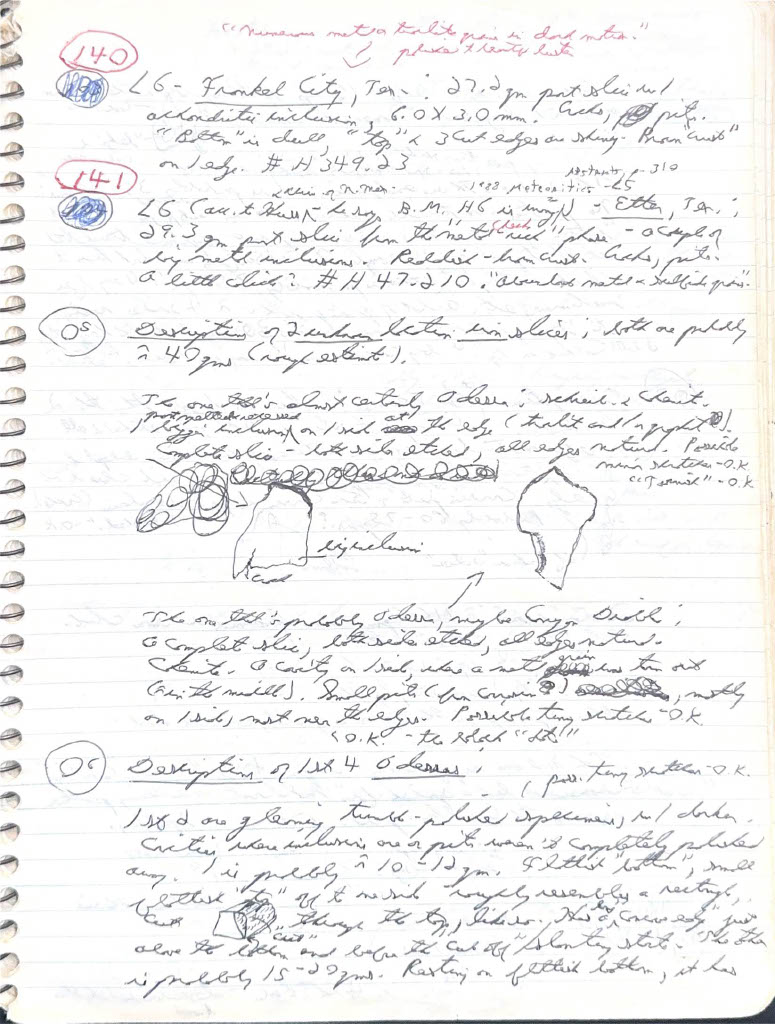 "Numerous metal & troilite grains in dark matrix."
140
L6 - Frankel City, Tex. : 27.2 gm part slice w/
achondritic inclusion, 6.0 X 3.0 mm. Cracks, pits.
"Bottom" is dull, "top" & 3 cut edges are shiny. Brown "crust"
on 1 edge. # H 349.23
p. 310
141
1988 Meteoritics - L5
L6 - B.M. H6 is wrong) - Etter, Tex. ;
29.3 gm part slice from the "metal rich" phase - a couple of
big metal inclusions. Reddish-brown crust. Cracks, pits.
A little # H 47.210. "abundant metal & sulfide grains."
Os
Description of 2 unknown location iron slices ; both are probably
≈ 40 gms (rough estimate).
The one that's almost certainly Odessa ;
bigger inclusion on 1 side at the edge (troilite and/or graphite).
Complete slice - both sides etched, all edges natural. Possible
minor scratches - O.K.
"Tarnish" - O.K.
big inclusion
Crack
The one that's probably Odessa, maybe Canyon Diablo ;
a complete slice, both sides etched, all edges natural.
Cohenite. A cavity on 1 side, where a metal grain was torn out
(in the middle). Small pits (from corrosion?), mostly
on 1 side, most near the edges. Possible tiny scratches - O.K.
"O.K. - the black "dots"
Oc
Description of 1st 4 Odessas ;
, poss. tiny scratches - O.K.
1st 2 are gleaming, tumble-polished specimens, w/ darker
Cavities where inclusions are or pits weren't completely polished
away. 1 is probably ≈ 10 - 12 gm. Flattish "bottom", small
flattish "top" off to one side - roughly resembles a rectangle,
cut "through the top, like so. Has concave edge" just
"cut"
above the bottom and before the cut off slanting starts. The other
is probably 15 - 20 gms. Resting on flattish bottom, it has